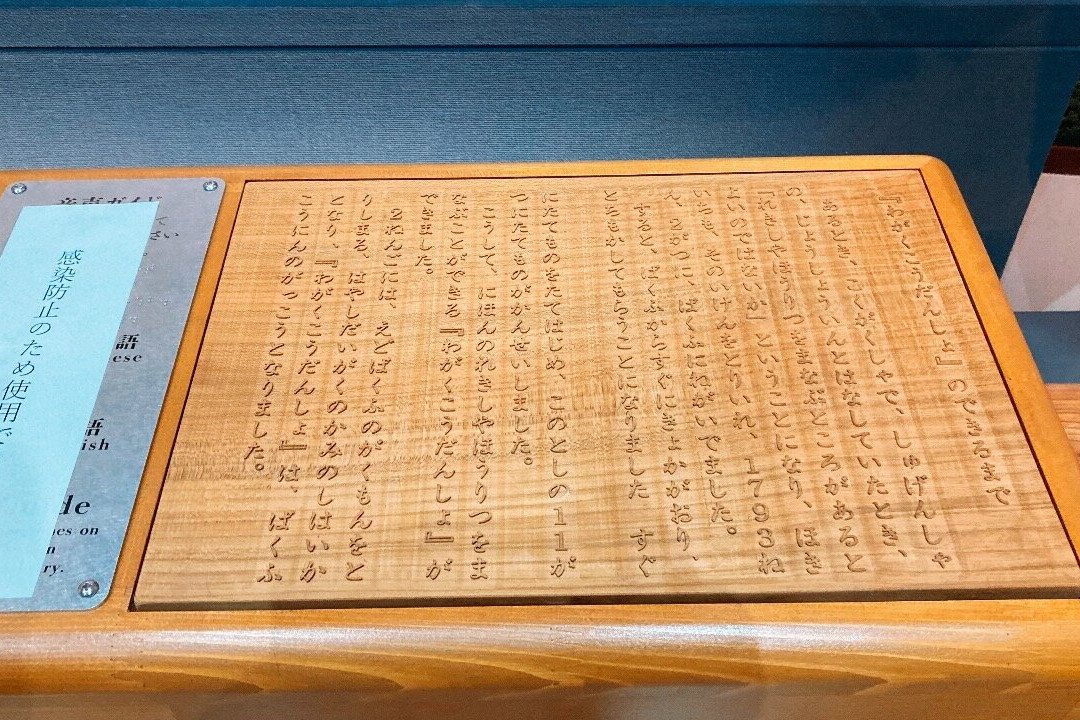 『わがくこうだんしょ』のできるまで
あるとき、こくがくしゃで、しゅげんしゃ
の、じょうしょういんとはなしていたとき、
『れきしやほうりつをまなぶところがあると
よいのではないか』ということになり、ほき
いちも、そのいけんをとりいれ、1793ね
ん、2がつに、ばくふにねがいでました。
すると、ばくふからすぐにきょかがおり、
とちもかしてもらうことになりました すぐ
にたてものをたてはじめ、このとしの11が
つにたてものがかんせいしました。
こうして、にほんのれきしやほうりつをま
なぶことができる『わがくこうだんしょ』が
できました。
2ねんごには、えどばくふのがくもんをと
りしまる、はやしだいがくのかみのしはいか
となり、『わがくこうだんしょ』は、ばくふ
こうにんのがっこうとなりました。
感染防止のため使用で